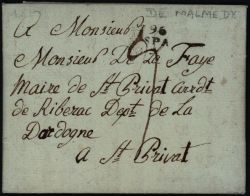 DE MALMEDY
A Monsieur
96
SPA
Monsieur De La Faye
Maire de St Privat Arrdt
de Riberac Dept de La
Dordogne
a St Privat